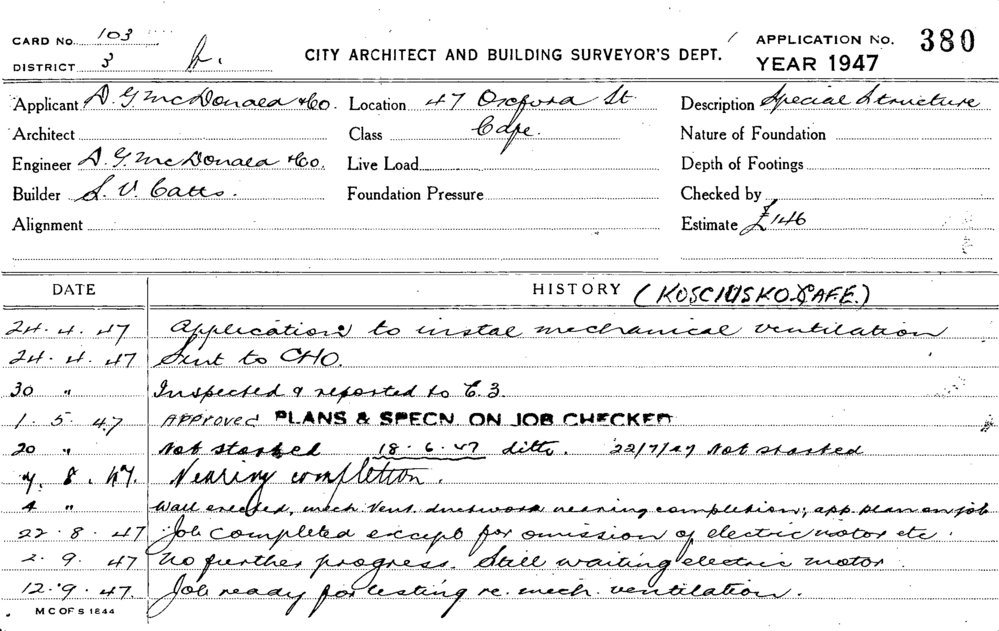 CARD No. 103
DISTRICT 3
CITY ARCHITECT AND BUILDING SURVEYOR'S DEPT.
APPLICATION No. 380
YEAR 1947
Applicant D. G. McDonald & Co. Location 47 Oxford St Description Special Structure
Architect Class Cafe. Nature of Foundation
Engineer D. G. McDonald & Co. Live Load Depth of Footings
Builder S. V. Catts. Foundation Pressure Checked by
Alignment Estimate £146
DATE HISTORY (KOSCIUSKO CAFE.)
24. 4. 47 Application to instal mechanical ventilation
24. 4. 47 Sent to CHO.
30 " Inspected & reported to C.3.
1. 5. 47 Approved PLANS & SPECN. ON JOB CHECKED
20 " Not started 18. 6. 47 ditto. 22/7/47 Not started
4. 8. 47. Nearing completion.
4 " Wall erected, mech. vent. ductwork nearing completion; app. plan on job
22. 8. 47 Job completed except for omission of electric motor etc.
2. 9. 47 No further progress. Still waiting electric motor.
12. 9. 47. Job ready for testing re. mech. ventilation.
M C OF S 1844